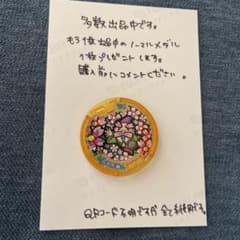 多数出品中です。
もう1枚出品中のノーマルメダル
1枚プレゼントします。
購入前にコメントください。
QRコード不明ですが全て未使用です。